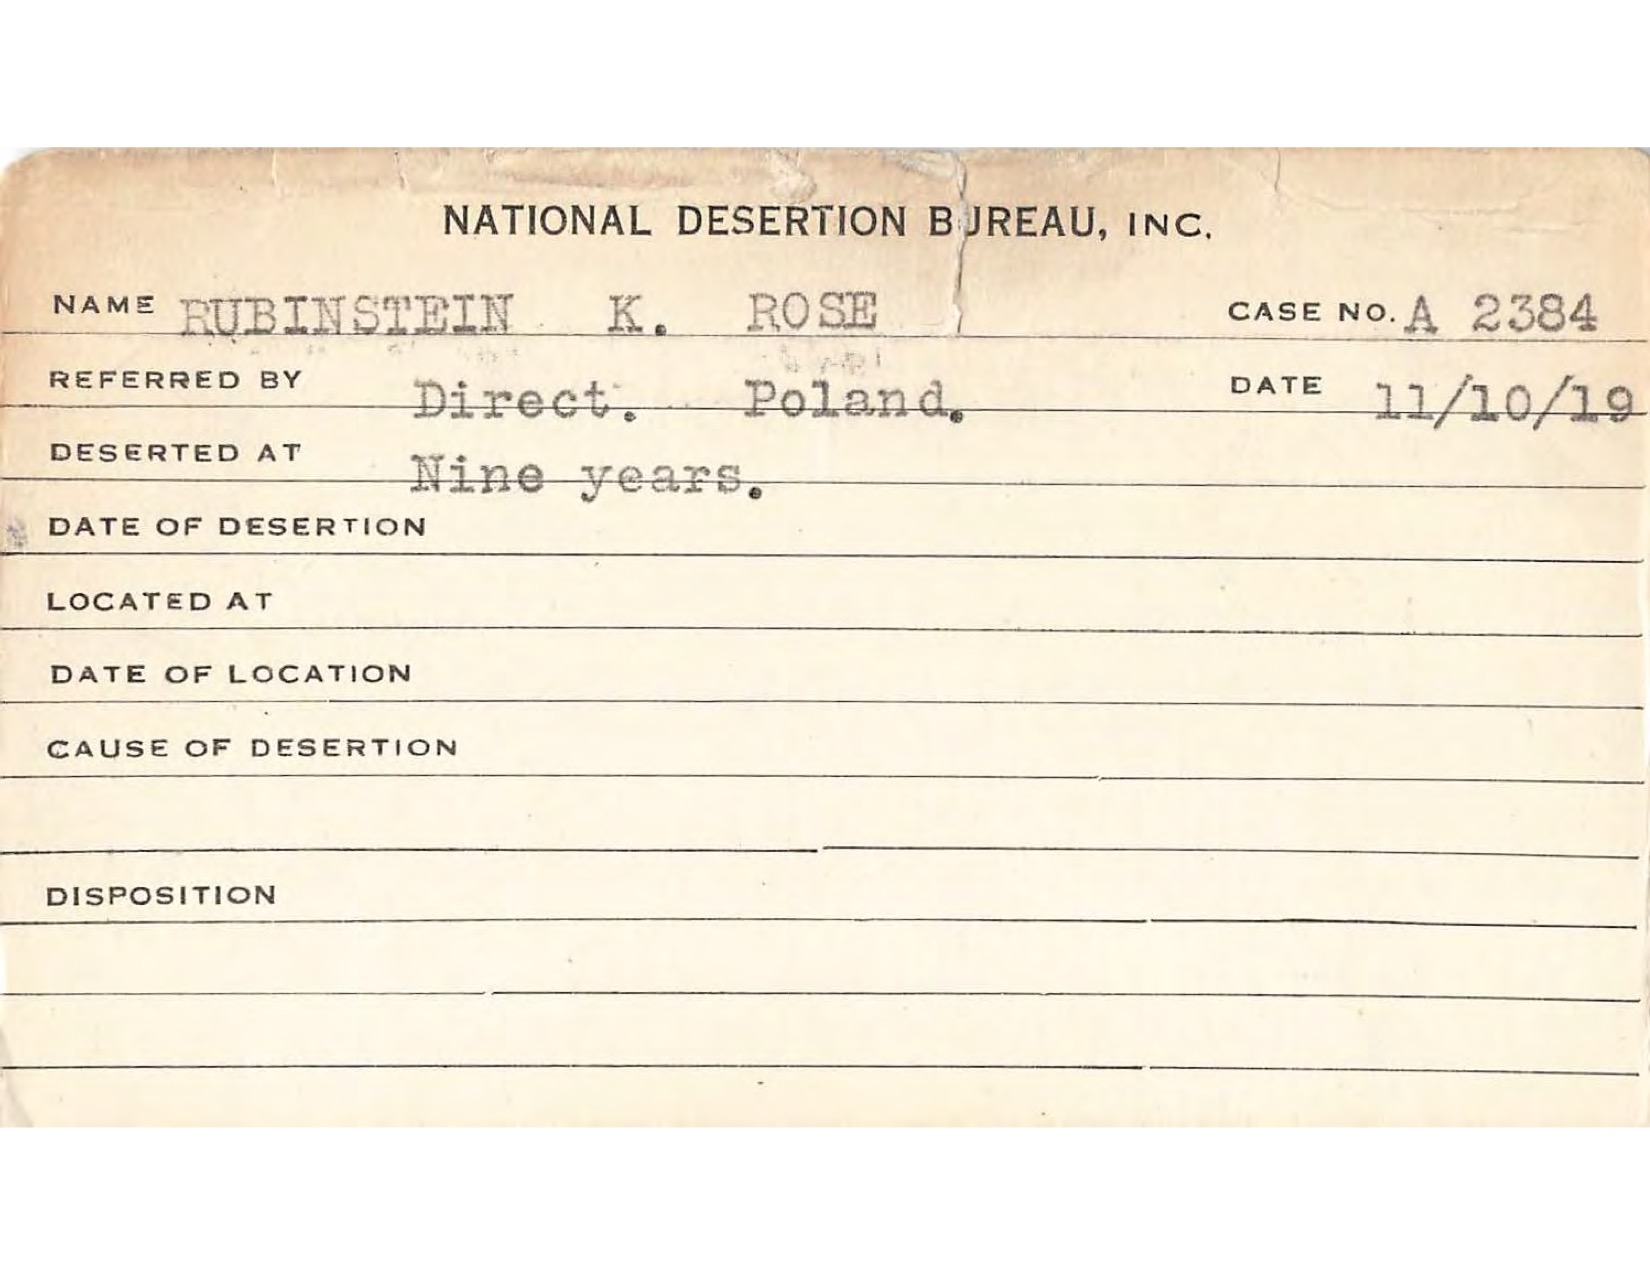 NATIONAL DESERTION BUREAU, INC.
NAME RUBINSTEIN K. ROSE CASE NO. A 2384
REFERRED BY Direct. Poland. DATE 11/10/19
DESERTED AT Nine years.
DATE OF DESERTION
LOCATED AT
DATE OF LOCATION
CAUSE OF DESERTION
DISPOSITION